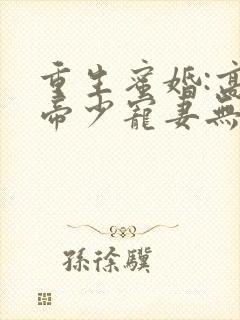 重生蜜婚:高
帝少寵妻無
孫徐驥